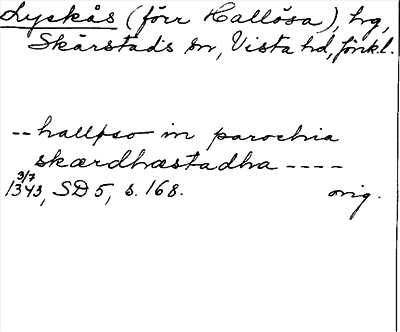 Lyckås (förr Hallösa), hg,
Skärstads sn, Vista hd, Jönk.l.
-- hallpso in parochia
skærdhæstadha ----
3/7
1343, SD 5, s. 168. orig.